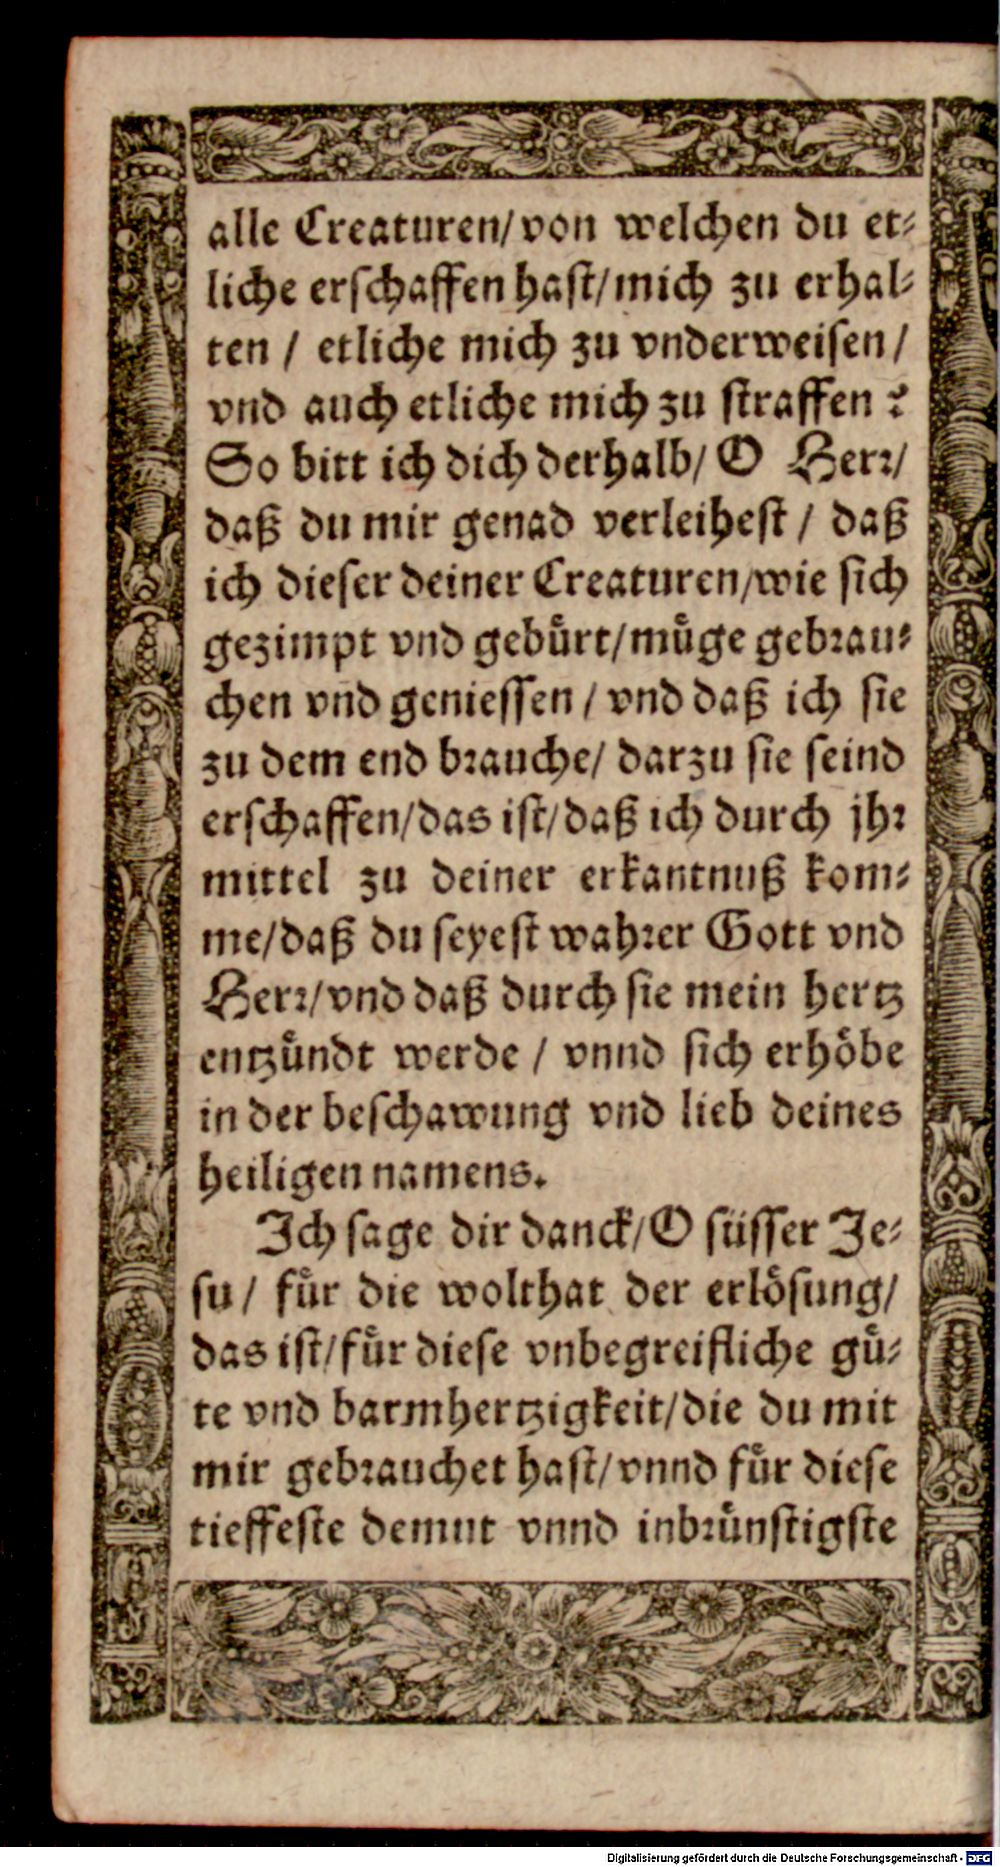 alle Creaturen/ von welchen du et⸗
liche erschaffen hast/ mich zu erhal⸗
ten / etliche mich zu vnderweisen /
vnd auch etliche mich zu straffen ?
So bitt ich dich derhalb/ O Herr/
daß du mir genad verleihest / daß
ich dieser deiner Creaturen/ wie sich
gezimpt vnd gebuͤrt/ muͤge gebrau⸗
chen vnd geniessen / vnd daß ich sie
zu dem end brauche/ darzu sie seind
erschaffen/ das ist/ daß ich durch jhr
mittel zu deiner erkantnuß kom⸗
me/ daß du seyest wahrer Gott vnd
Herr/ vnd daß durch sie mein hertz
entzuͤndt werde / vnnd sich erhoͤbe
in der beschawung vnd lieb deines
heiligen namens.
Ich sage dir danck/ O süsser Je⸗
su / fuͤr die wolthat der erloͤsung/
das ist/ fuͤr diese vnbegreifliche guͤ⸗
te vnd barmhertzigkeit/ die du mit
mir gebrauchet hast/ vnnd fuͤr diese
tieffeste demut vnnd inbruͤnstigste
Digitalisierung gefördert durch die Deutsche Forschungsgemeinschaft - DFG